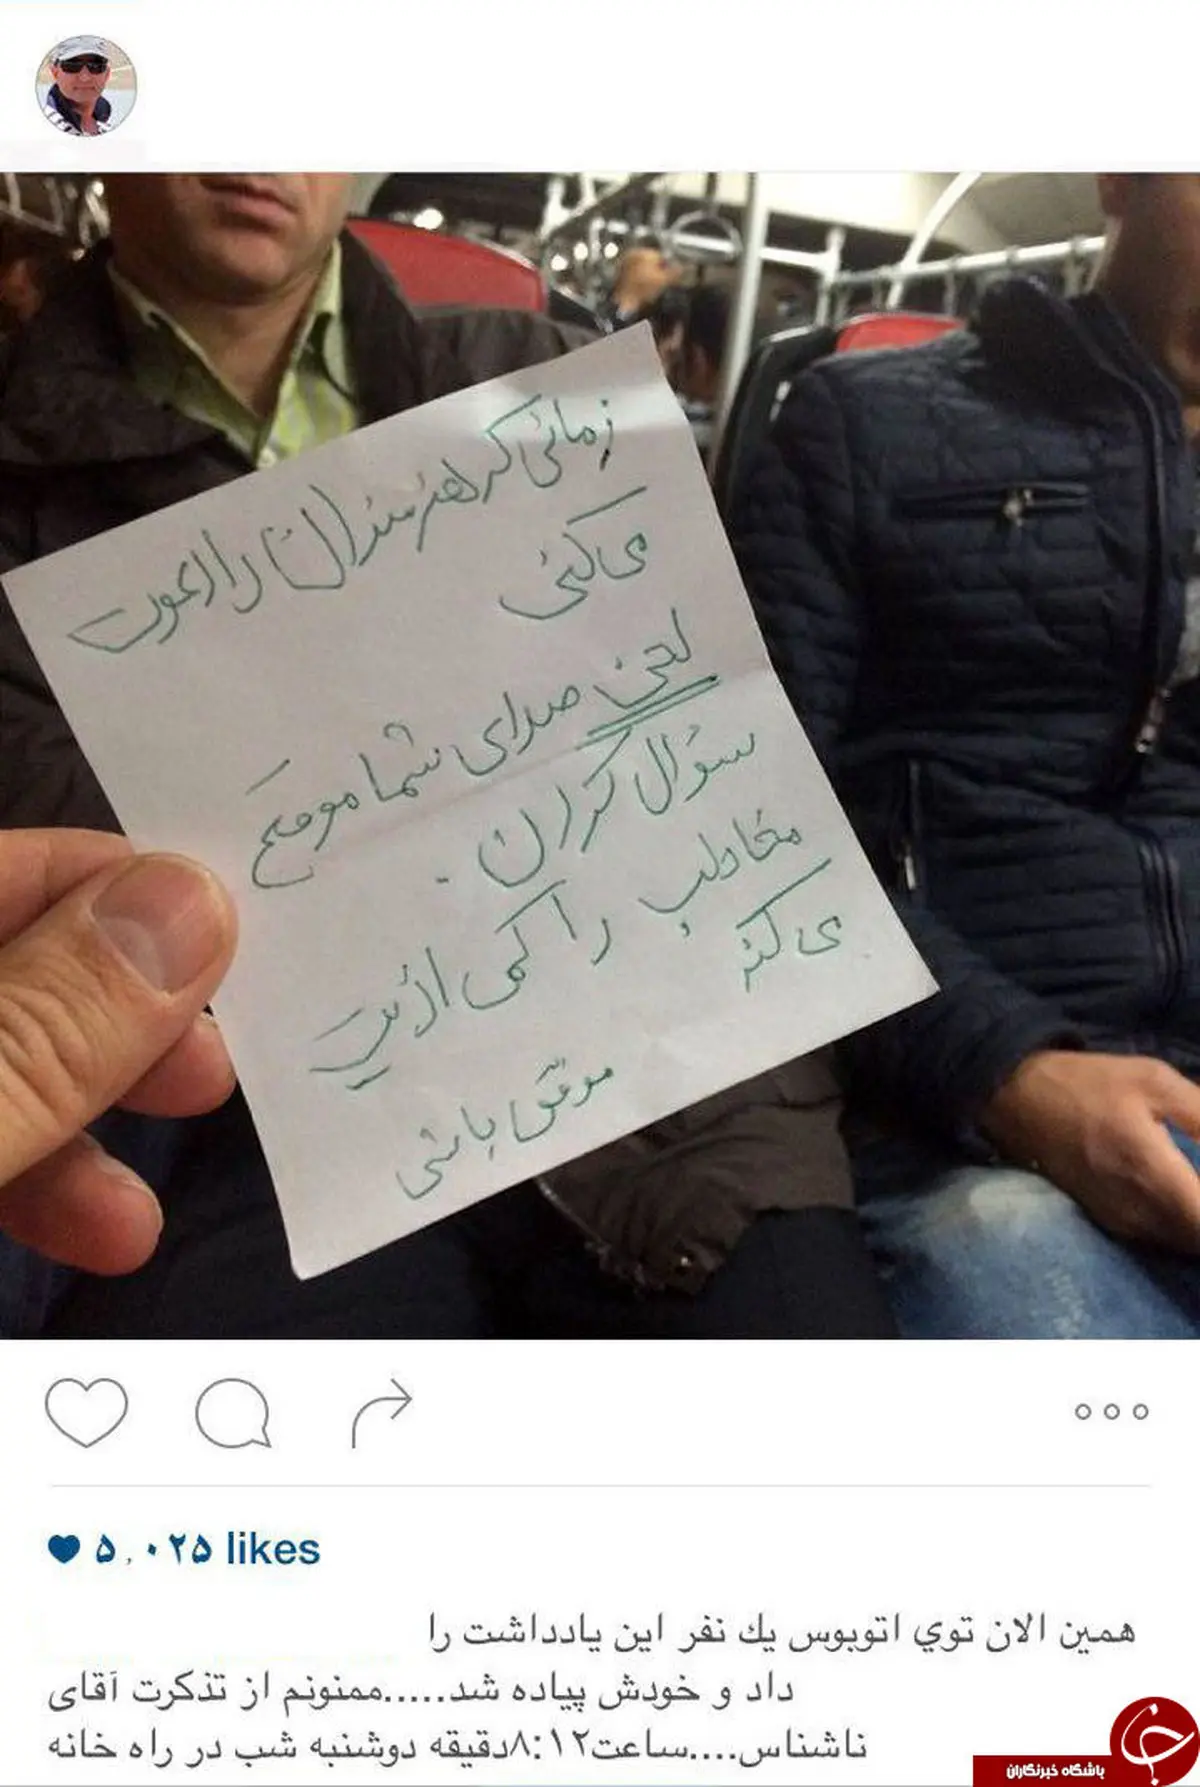 زمانی که هنرمندان را دعوت
می کنی
لحن صدای شما موقع
سؤال کردن.
مخاطب را کمی اذیت
می کند
موفق باشی
۵,۰۲۵ likes
همین الان توي اتوبوس يك نفر این یادداشت را
داد و خودش پیاده شد.....ممنونم از تذکرت آقای
ناشناس....ساعت۸:۱۲دقیقه دوشنبه شب در راه خانه
باشگاه خبرنگاران